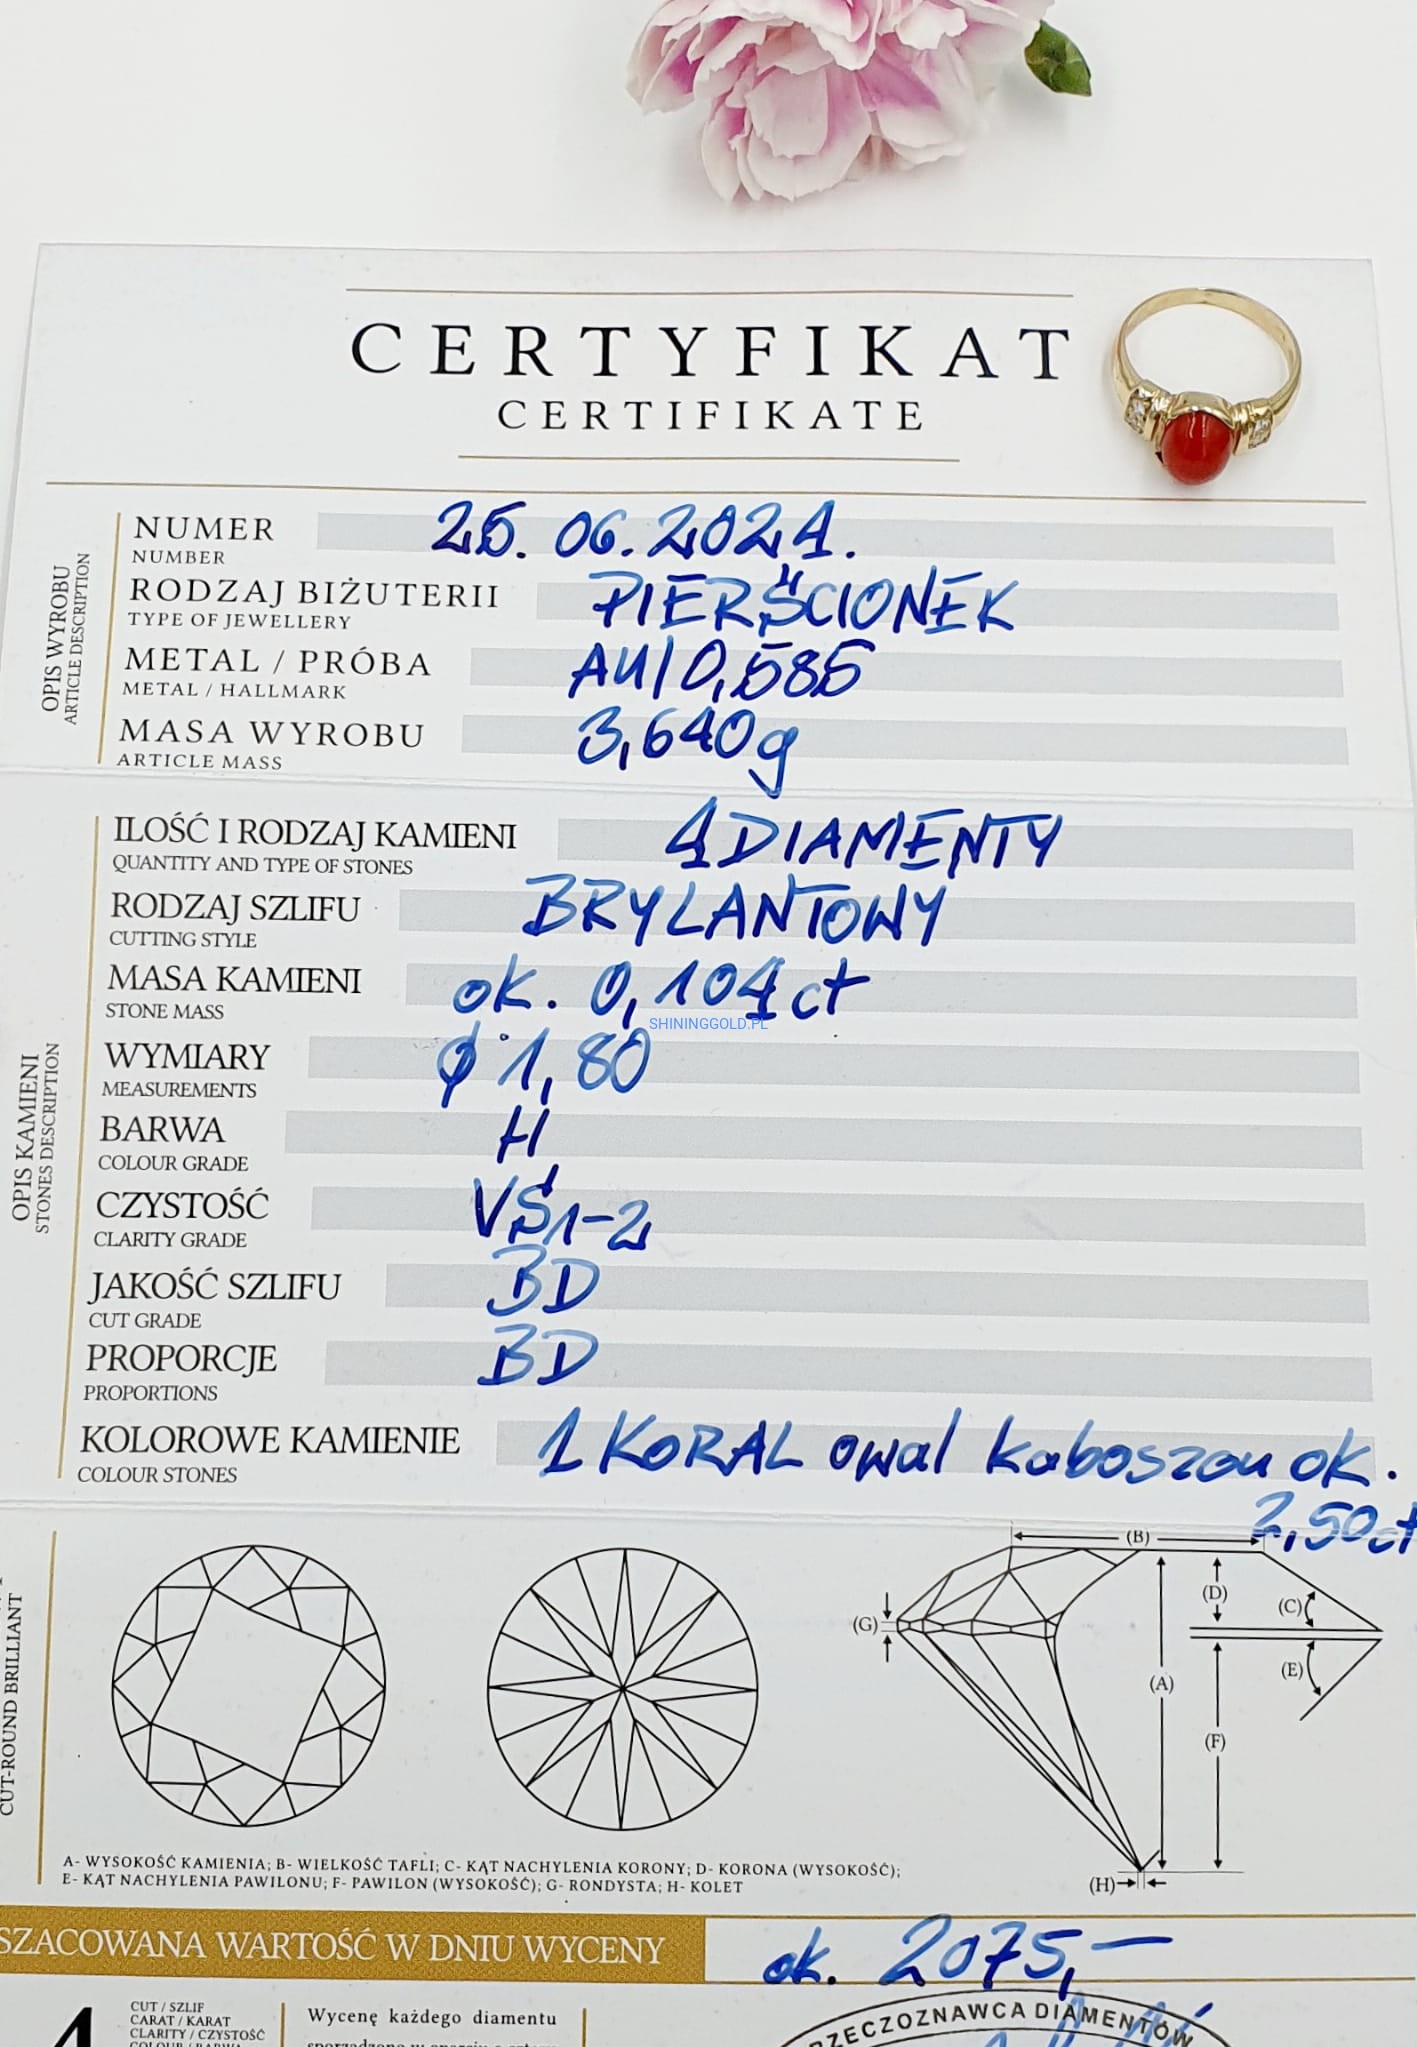 CERTYFIKAT
CERTIFIKATE
OPIS WYROBU
ARTICLE DESCRIPTION
NUMER 25.06.2024.
NUMBER
RODZAJ BIŻUTERII PIERŚCIONEK
TYPE OF JEWELLERY
METAL / PRÓBA AU/0,585
METAL / HALLMARK
MASA WYROBU 3,640g
ARTICLE MASS
OPIS KAMIENI
STONES DESCRIPTION
ILOŚĆ I RODZAJ KAMIENI 4 DIAMENTY
QUANTITY AND TYPE OF STONES
RODZAJ SZLIFU BRYLANTOWY
CUTTING STYLE
MASA KAMIENI ok. 0,104ct
STONE MASS
SHININGGOLD.PL
WYMIARY ϕ 1,80
MEASUREMENTS
BARWA H
COLOUR GRADE
CZYSTOŚĆ VS1-2
CLARITY GRADE
JAKOŚĆ SZLIFU BD
CUT GRADE
PROPORCJE BD
PROPORTIONS
KOLOROWE KAMIENIE 1 KORAL owal kaboszon ok.
COLOUR STONES
2,50ct
CUT-ROUND BRILLIANT
(B)
(D)
(C)
(G)
(E)
(A)
(F)
(H)
A- WYSOKOŚĆ KAMIENIA; B- WIELKOŚĆ TAFLI; C- KĄT NACHYLENIA KORONY; D- KORONA (WYSOKOŚĆ);
E- KĄT NACHYLENIA PAWILONU; F- PAWILON (WYSOKOŚĆ); G- RONDYSTA; H- KOLET
SZACOWANA WARTOŚĆ W DNIU WYCENY ok. 2075,—
4
CUT / SZLIF
CARAT / KARAT
CLARITY / CZYSTOŚĆ
COLOUR / BARWA
Wycenę każdego diamentu
RZECZOZNAWCA DIAMENTÓW